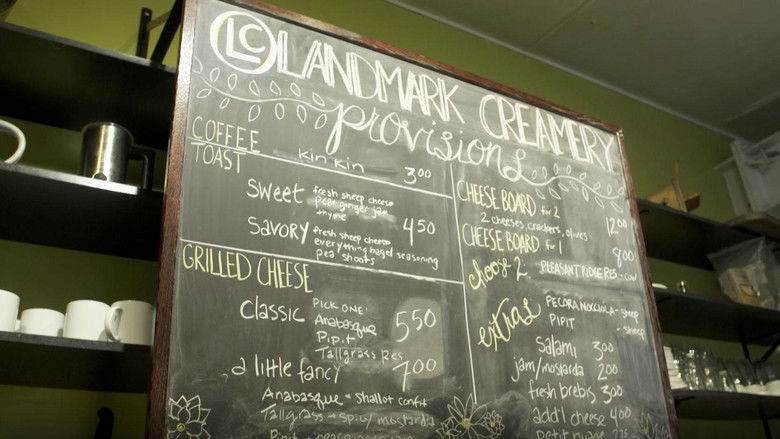 LC LANDMARK CREAMERY
provisions
COFFEE Kin Kin 3.00
TOAST
Sweet fresh sheep cheese
pear ginger jam
thyme
4.50
Savory fresh sheep cheese
everything bagel seasoning
pea shoots
GRILLED CHEESE
Classic PICK ONE:
Anabasque
Pipit
Tallgrass Res
5.50
a little fancy 7.00
Anabasque + shallot confit
Tallgrass + spicy mostarda
Pipit
CHEESE BOARD for 2
2 cheeses, crackers, olives 12.00
CHEESE BOARD for 1 8.00
choose 2: PLEASANT RIDGE RES - cow
PECORA NOCCIOLA - sheep
PIPIT - sheep
extras
Salami 3.00
jam/mostarda 2.00
fresh brebis 3.00
add'l cheese 4.00